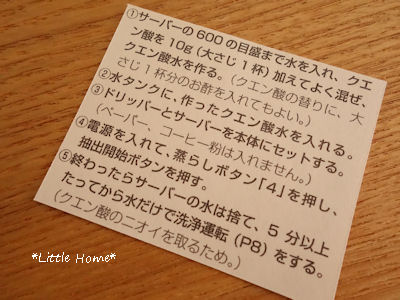 ①サーバーの600の目盛まで水を入れ、クエ
ン酸を10g(大さじ1杯)加えてよく混ぜ、
クエン酸水を作る。(クエン酸の替りに、大
さじ1杯分のお酢を入れてもよい。)
②水タンクに、作ったクエン酸水を入れる。
③ドリッパーとサーバーを本体にセットする。
(ペーパー、コーヒー粉は入れません。)
④電源を入れて、蒸らしボタン「4」を押し、
抽出開始ボタンを押す。
⑤終わったらサーバーの水は捨て、5分以上
たってから水だけで洗浄運転(P8)をする。
(クエン酸のニオイを取るため。)
*Little Home*